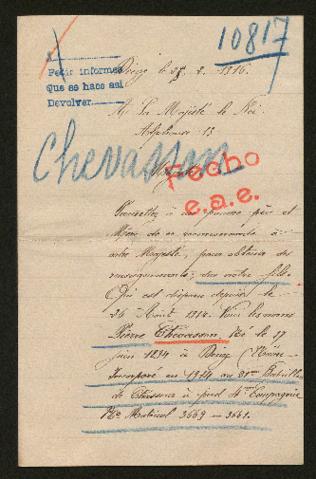 10817
A
Pedir informes
Que se hace así
Devolver
le 28. 2. 1916.
A Sa Majesté le Roi
Alphonse 13
Chevassan
Fecho
e.a.e.
Permettez à un pauvre père et
Mère de se recommander à
votre Majesté, pour obtenir des
renseignements, de notre fils.
Qui est disparu depuis le
26 Août 1914. Voici les noms
Pierre Chevassan, Né le 17
juin 1894 à
Incorporé en 1914 au Bataillon
de Chasseurs à pied 4e Compagnie
No Matricul 3669 ou 3661.